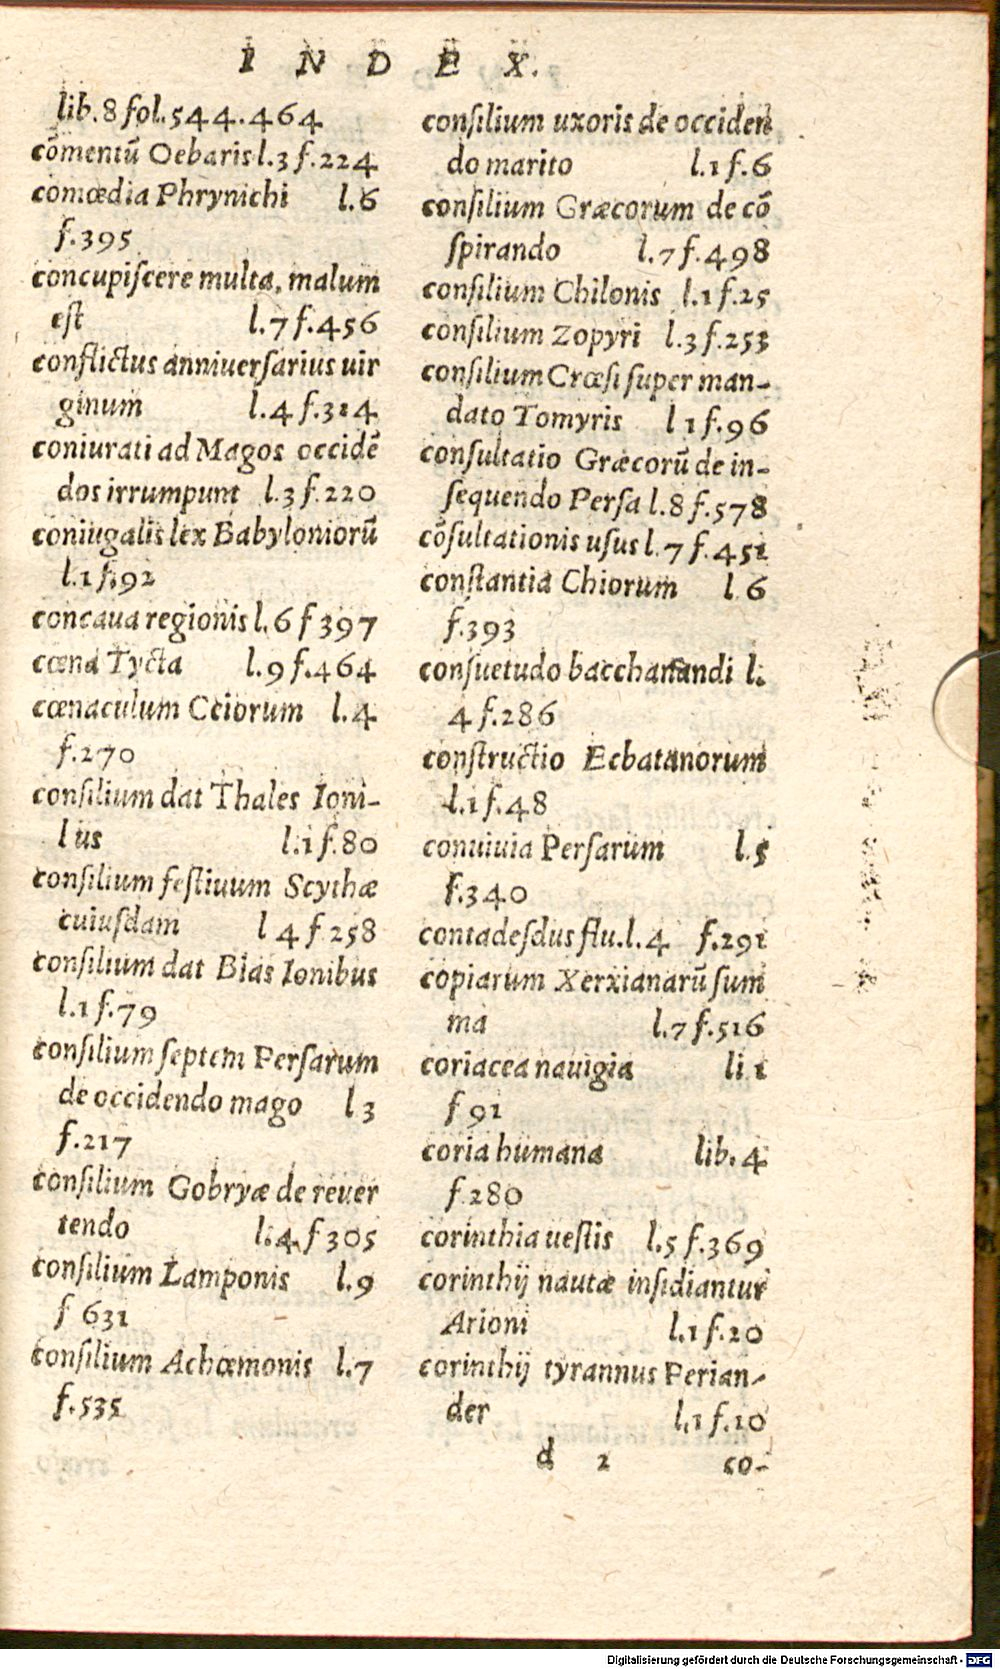 INDEX.
lib. 8 fol. 544. 464
cōmentū Oebaris l. 3 f. 224
comœdia Phrynichi l. 6
f. 395
concupiſcere multa, malum
eſt l. 7 f. 456
conflictus anniuerſarius uir
ginum l. 4 f. 314
coniurati ad Magos occidē
dos irrumpunt l. 3 f. 220
coniugalis lex Babyloniorū
l. 1 f. 92
concaua regionis l. 6 f 397
cœna Tycta l. 9 f. 464
cœnaculum Cciorum l. 4
f. 270
conſilium dat Thales Ioni-
lus l. 1 f. 80
conſilium feſtiuum Scythæ
cuiuſdam l 4 f 258
conſilium dat Bias Ionibus
l. 1 f. 79
conſilium ſeptem Perſarum
de occidendo mago l 3
f. 217
conſilium Gobryæ de reuer
tendo l. 4 f 305
conſilium Lamponis l. 9
f 631
conſilium Achœmonis l. 7
f. 535
conſilium uxoris de occiden
do marito l. 1 f. 6
conſilium Græcorum de cō
ſpirando l. 7 f. 498
conſilium Chilonis l. 1 f. 25
conſilium Zopyri l. 3 f. 253
conſilium Crœſi ſuper man-
dato Tomyris l 1 f. 96
conſultatio Græcorū de in-
ſequendo Perſa l. 8 f. 578
cōſultationis uſus l. 7 f. 451
conſtantia Chiorum l 6
f. 393
conſuetudo bacchanandi l.
4 f. 286
conſtructio Ecbatanorum
l. 1 f. 48
conuiuia Perſarum l. 5
f. 340
contadeſdus flu. l. 4 f. 291
copiarum Xerxianarū ſum
ma l. 7 f. 516
coriacea nauigia li 1
f 91
coria humana lib. 4
f 280
corinthia ueſtis l. 5 f. 369
corinthij nautæ inſidiantur
Arioni l. 1 f. 20
corinthij tyrannus Perian-
der l. 1 f. 10
d 2 co-
Digitalisierung gefördert durch die Deutsche Forschungsgemeinschaft - DFG